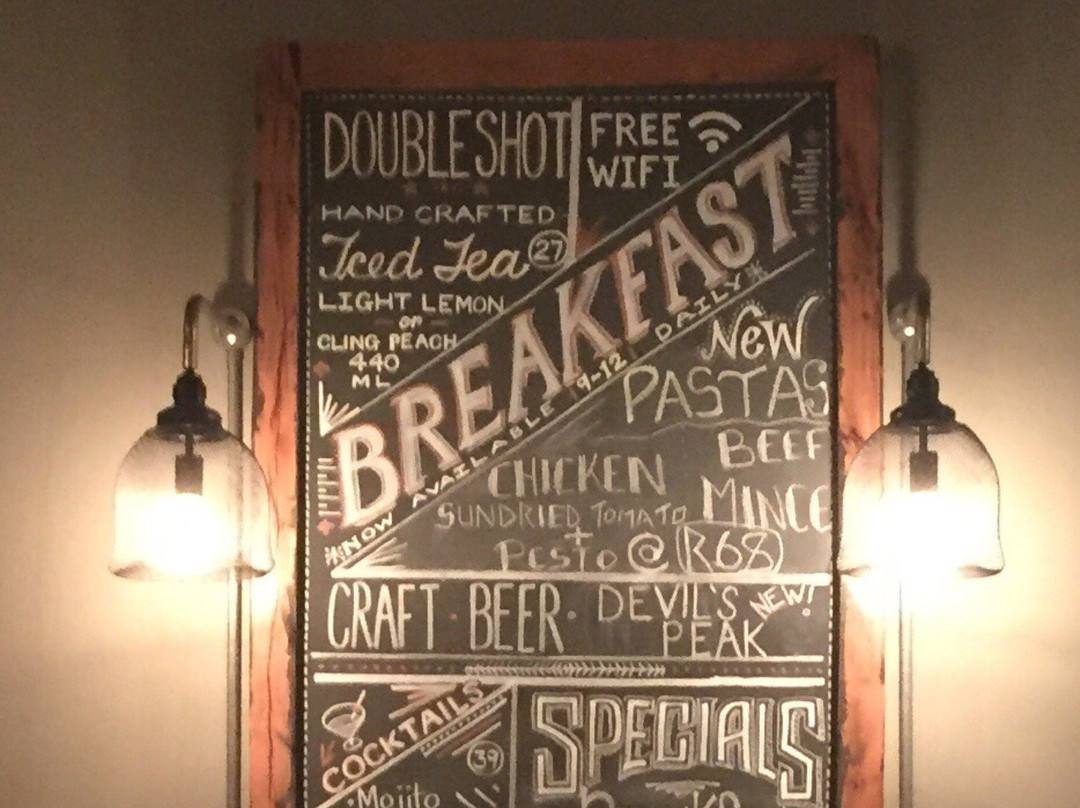 DOUBLESHOT
FREE
WIFI
HAND CRAFTED
Iced Tea 27
LIGHT LEMON
or
CLING PEACH
440
ML
BREAKFAST
*NOW AVAILABLE 9-12 DAILY*
NEW
PASTAS
BEEF
MINCE
CHICKEN
SUNDRIED TOMATO
+
PESTO @ (R68)
CRAFT · BEER · DEVIL'S
PEAK
NEW!
COCKTAILS
39
·Mojito
SPECIALS